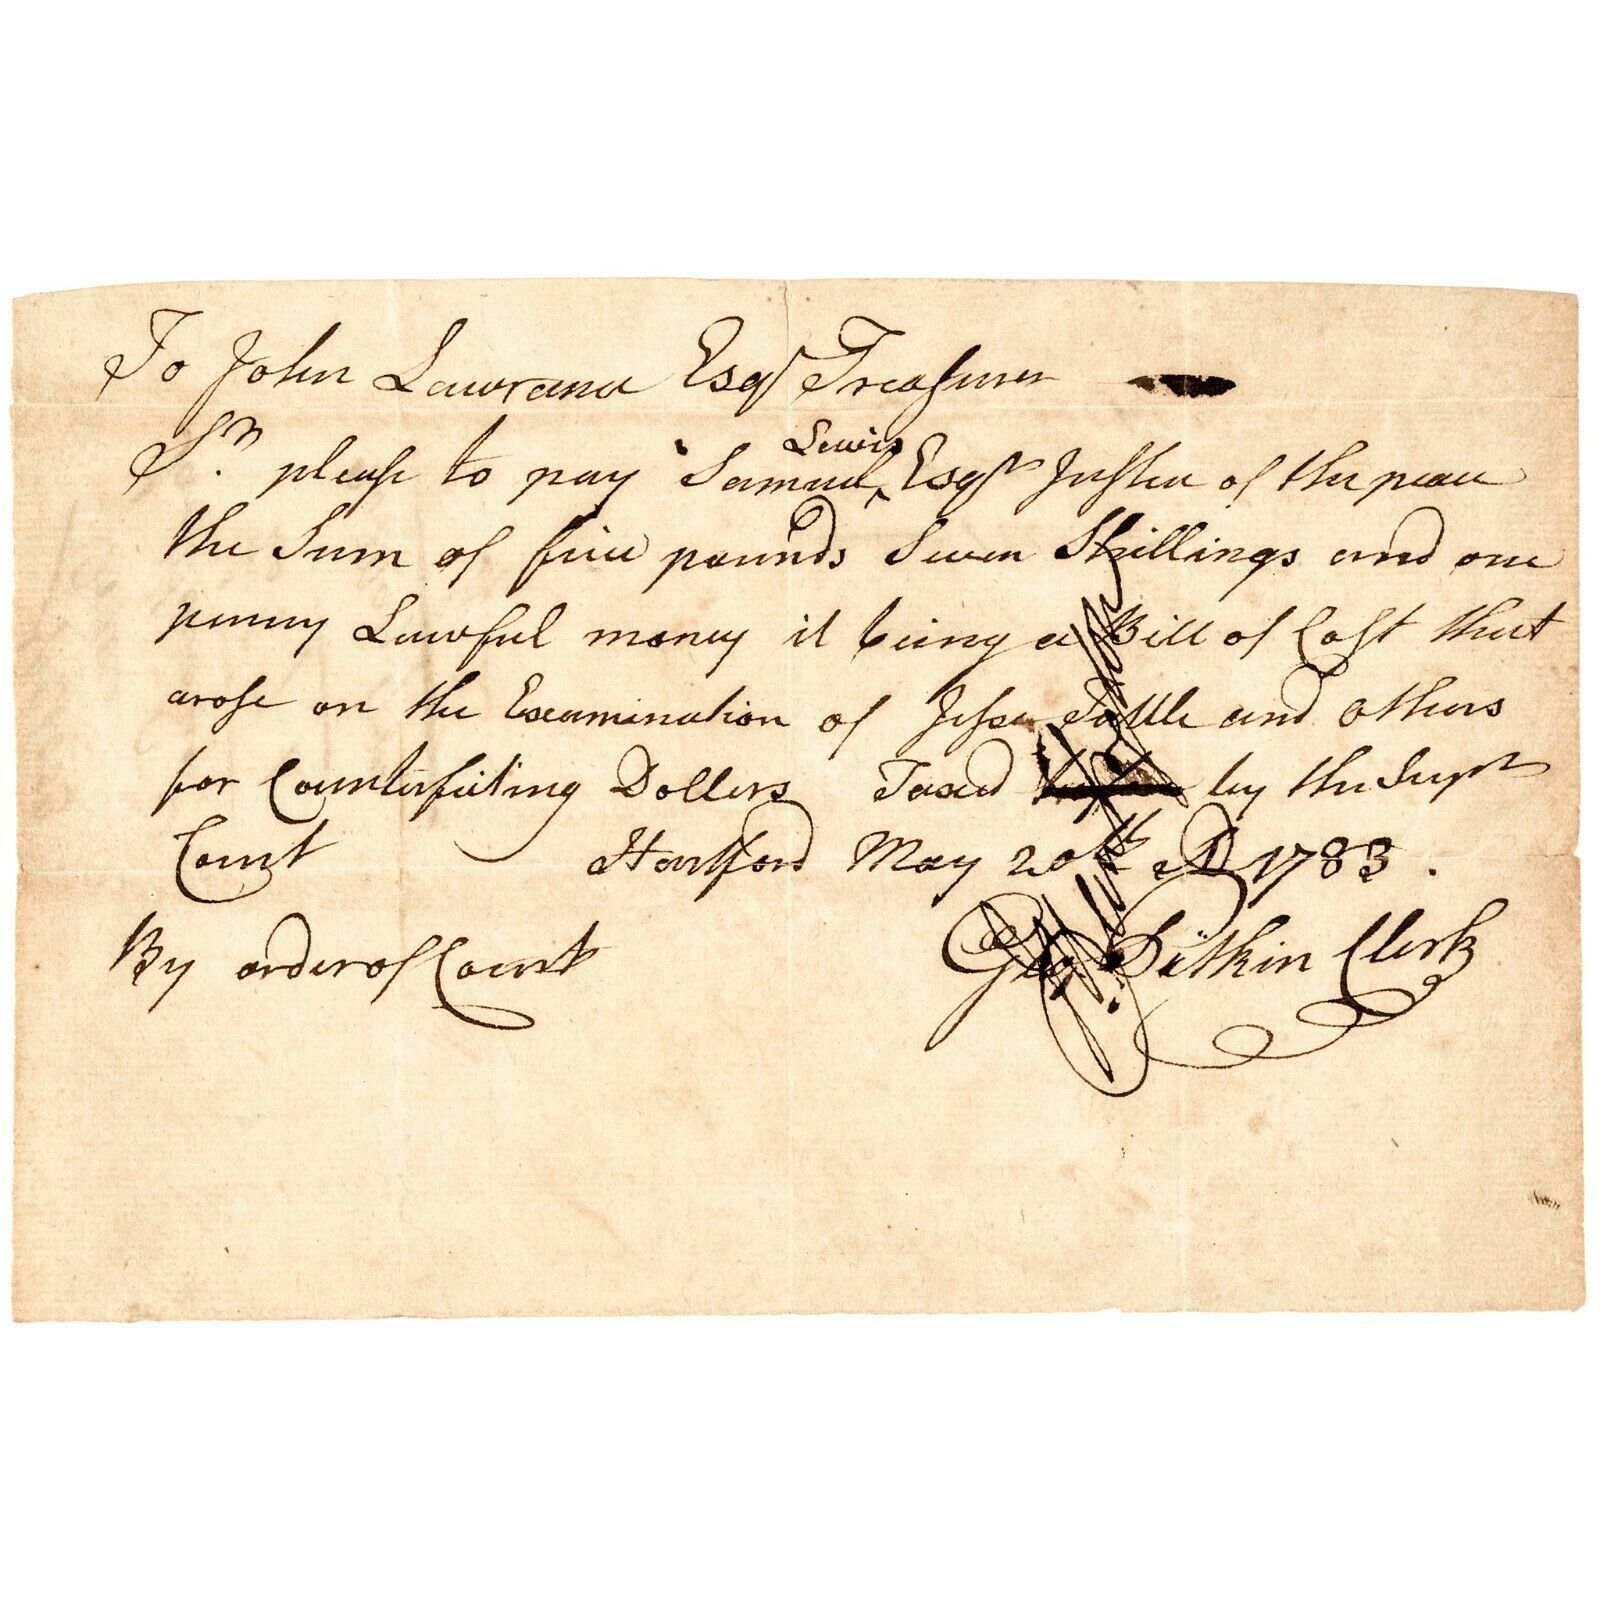 To John Lawrance Esqr Treasurer
Sr. please to pay Samuel Lewis Esqr Justice of the peace
the Sum of five pounds Seven Shillings and one
penny Lawful money it being a Bill of Cost that
arose on the Examination of Jesse Tuttle and others
for Counterfeiting Dollers Taxed by the Supr
Court Hartford May 20th AD 1783.
By order of Court Geo. Pitkin Clerk